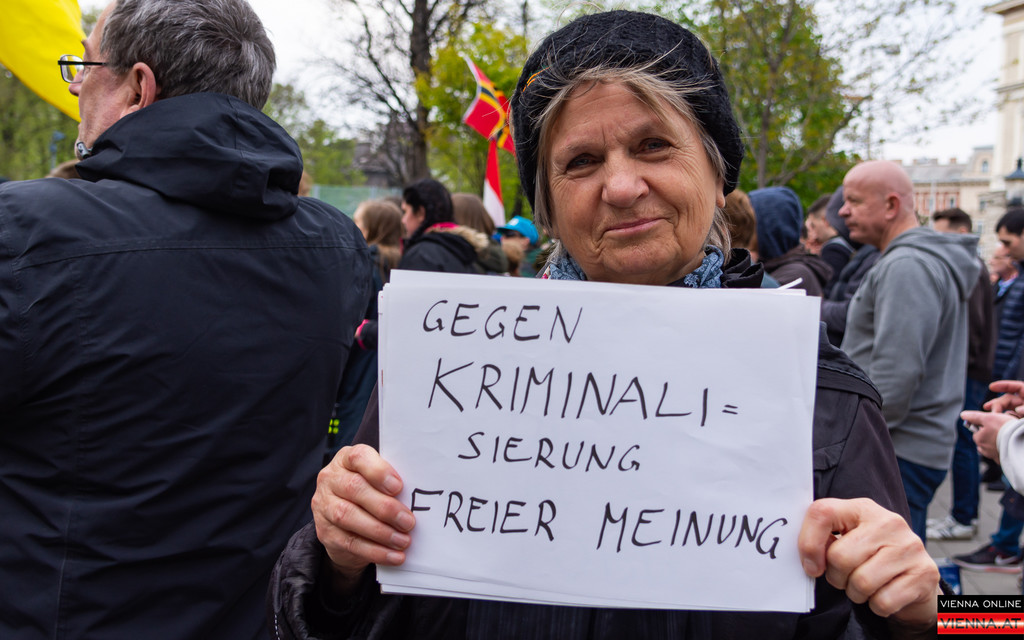 GEGEN
KRIMINALI=
SIERUNG
FREIER MEINUNG
VIENNA ONLINE
VIENNA.AT